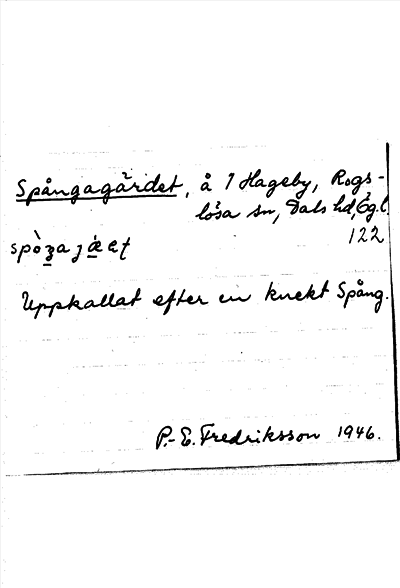 Spångagärdet, å 7 Hageby, Rogs-
lösa sn, Dals hd, Ög.l.
122
Uppkallat efter en knekt Spång.
P.-E. Fredriksson 1946.